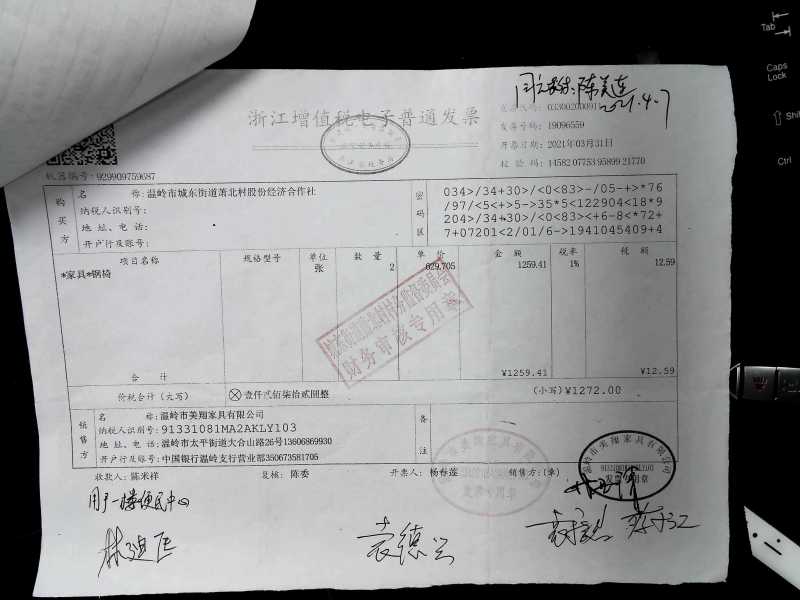 2021.4.7
浙江增值税电子普通发票
发票号码: 19096559
开票日期: 2021年03月31日
校验码: 14582 07753 95899 21770
机器编号: 929909759687
购买方
名 称: 温岭市城东街道萧北村股份经济合作社
纳税人识别号:
地 址、电 话:
开户行及账号:
密码区
034>/34+30>/<0<83>-/05-+>*76
/97/<5<+>5->35*5<122904<18*9
204>/34+30>/<0<83><+6-8<*72+
7+07201<2/01/6->1941045409+4
项目名称 规格型号 单位 数 量 单 价 金 额 税率 税 额
*家具*钢椅 张 2 629.705 1259.41 1% 12.59
财务审核专用章
合 计 ¥1259.41 ¥12.59
价税合计（大写） ⊗壹仟贰佰柒拾贰圆整 (小写)¥1272.00
销售方
名 称: 温岭市美翔家具有限公司
纳税人识别号: 91331081MA2AKLY103
地 址、电 话: 温岭市太平街道大合山路26号13606869930
开户行及账号: 中国银行温岭支行营业部350673581705
备注
收款人: 陈米祥 复核: 陈委 开票人: 杨春莲 销售方: (章)
温岭市美翔家具有限公司
91331081MA2AKLY103
发票专用章
用于一楼便民中心
袁德兰
Tab
Caps Lock
Shift
Ctrl